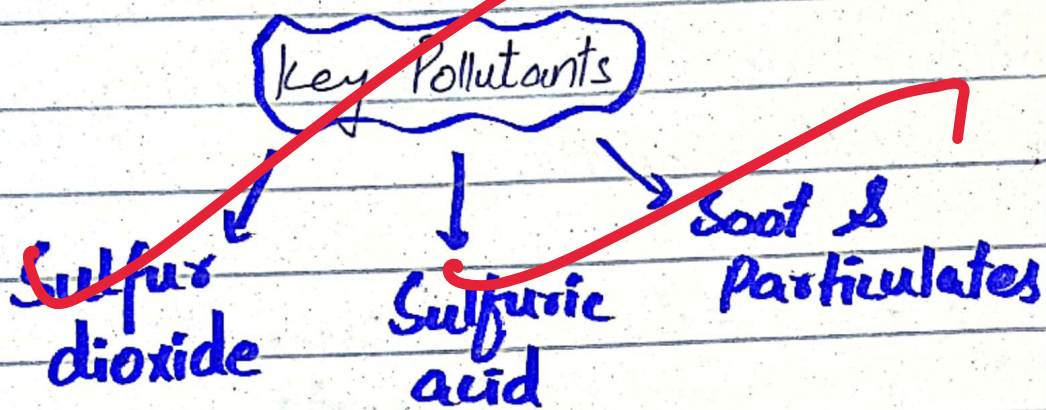 Key Pollutants
Sulfur
dioxide
Sulfuric
acid
Soot &
Particulates